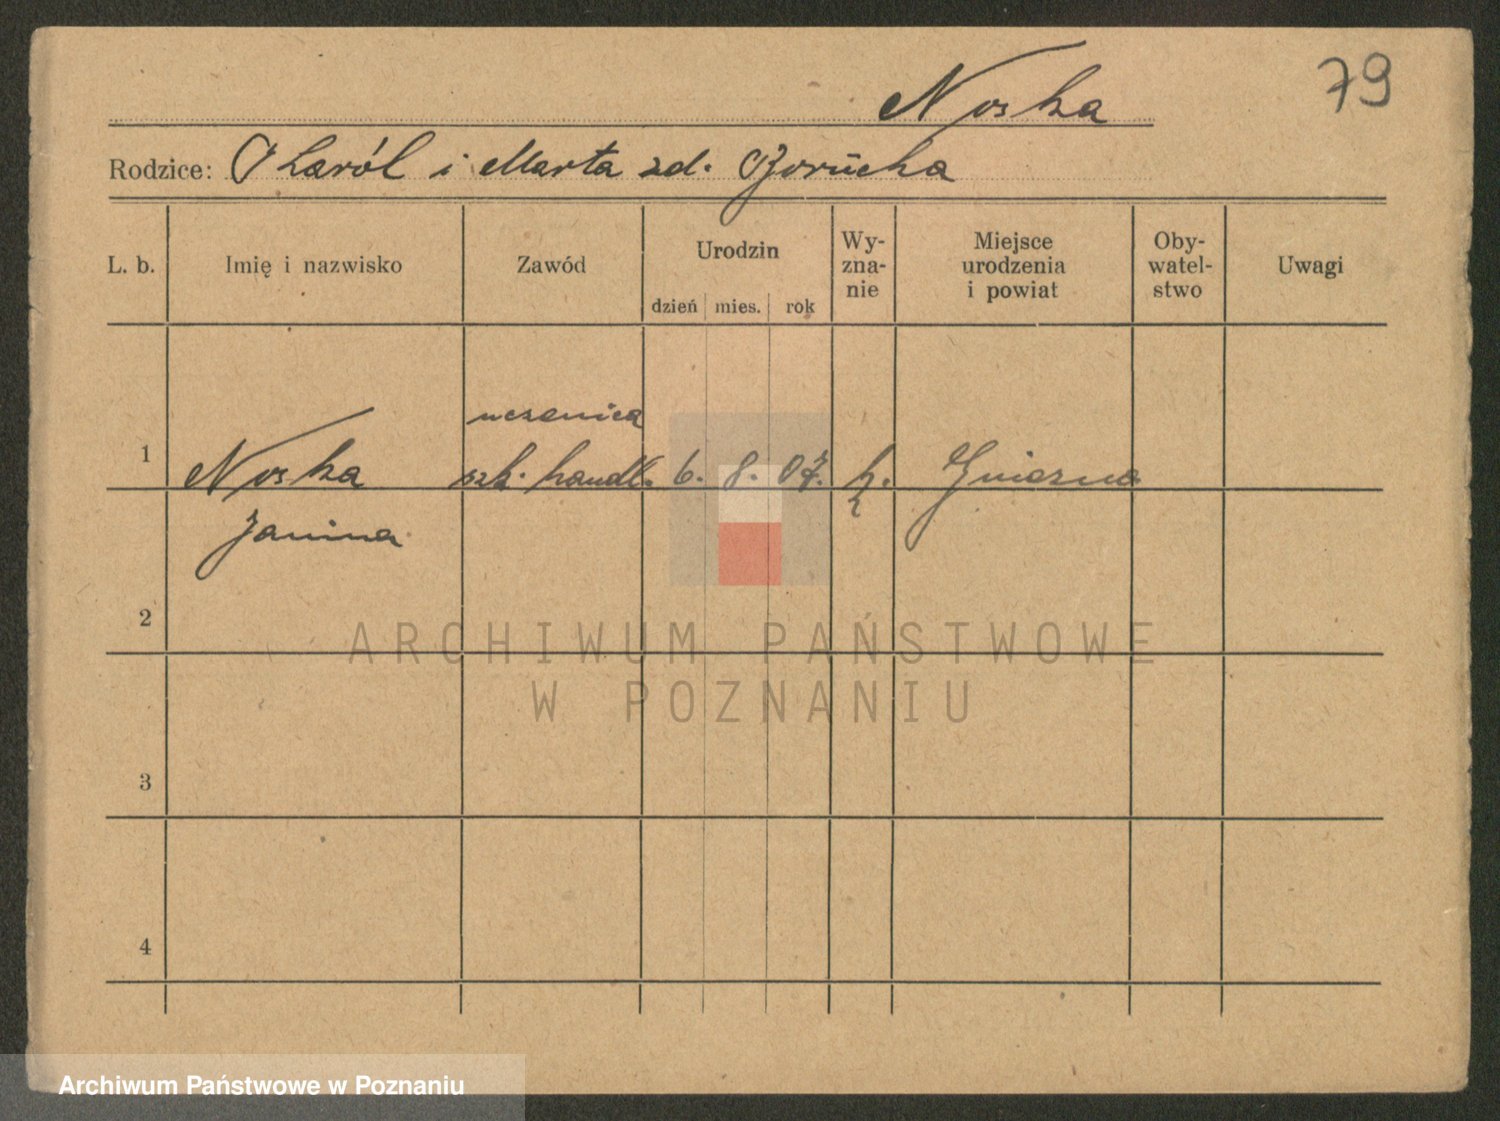 Noska 79
Rodzice: Karól i Marta zd.
L. b. Imię i nazwisko Zawód Urodzin dzień mies. rok Wy-zna-nie Miejsce urodzenia i powiat Oby-watel-stwo Uwagi
uczenica
1 Noska szk. handl. 6. 8. 07. k. Gniezno
Janina
2
ARCHIWUM PAŃSTWOWE
W POZNANIU
3
4
Archiwum Państwowe w Poznaniu